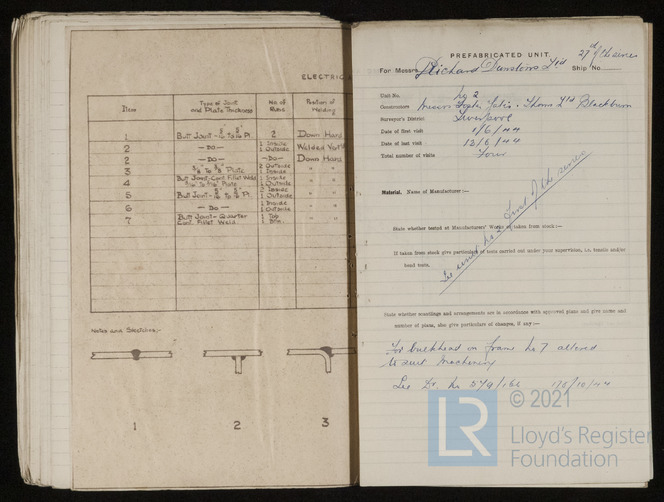 ELECTRIC
Item
Type of Joint and Plate Thickness
No of Runs
Position of Welding
1 Butt Joint - 5/16" to 5/16" Pl. 2 Down Hand
2 - Do - 1 Inside 1 Outside Welded Vert
2 - Do - - Do - Down Hand
3 Plate 2 Outside 1 Inside " "
4 Butt Joint-Cont. Fillet Weld Plate 1 Inside 1 Outside " "
5 Butt Joint- Pl. 1 Outside " "
6 - Do - 1 Inside 1 Outside " "
7 Butt Joint- Quarter Cont. Fillet Weld. 1 Top 1 Btm. " "
Notes and Sketches:-
1 2 3
PREFABRICATED UNIT.
27th of the series
For Messrs. Richard Dunstons Ltd Ship No.
Unit No. No 2
Constructors Messrs Foster Yates & Thoms Ltd Blackburn
Surveyor's District Liverpool
Date of first visit 1/6/44
Date of last visit 12/6/44
Total number of visits Four
Material. Name of Manufacturer:-
State whether tested at Manufacturers' Works or taken from stock:-
See unit No 2 first of the series
If taken from stock give particulars of tests carried out under your supervision, i.e. tensile and/or
bend tests.
State whether scantlings and arrangements are in accordance with approved plans and give name and
number of plans, also give particulars of changes, if any :-
For bulkhead on frame No 7 altered
to suit machinery
See Dr. No 579/166 178/10/44
© 2021
LR
Lloyd's Register
Foundation